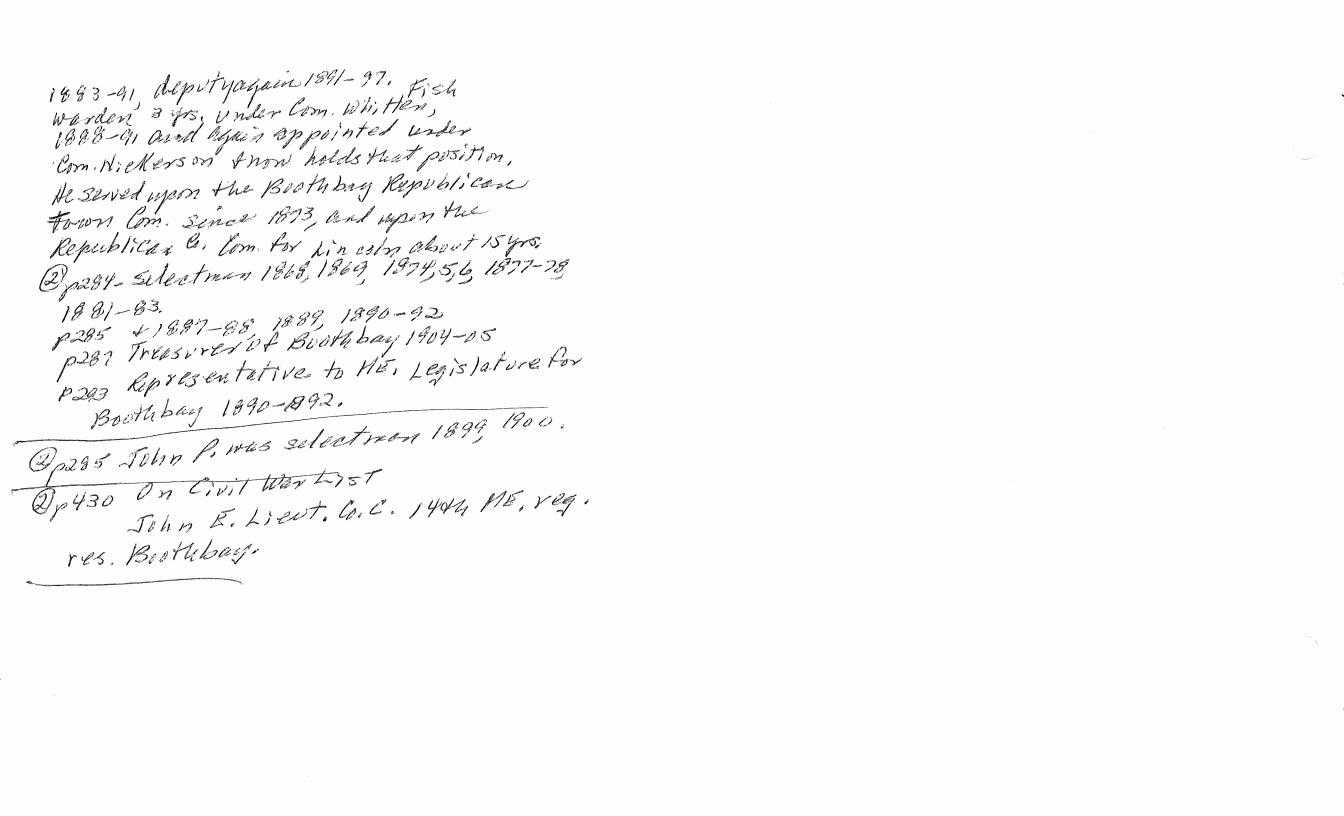 1883-91, deputy again 1891-97. Fish
warden 3 yrs. under Com. Whitten,
1888-91 and again appointed under
Com. Nickerson & now holds that position.
He served upon the Boothbay Republican
Town Com. since 1873, and upon the
Republican Co. Com. for Lincoln about 15 yrs.
② p284- selectman 1868, 1869, 1874,5,6, 1877-78,
1881-83.
p285 & 1887-88, 1889, 1890-92
p287 Treasurer of Boothbay 1904-05
p293 Representative to ME. Legislature for
Boothbay 1890-1892.
② p285 John P. was selectman 1899, 1900.
② p430 On Civil War List
John E. Lieut. Co. C. 14th ME. reg.
res. Boothbay.